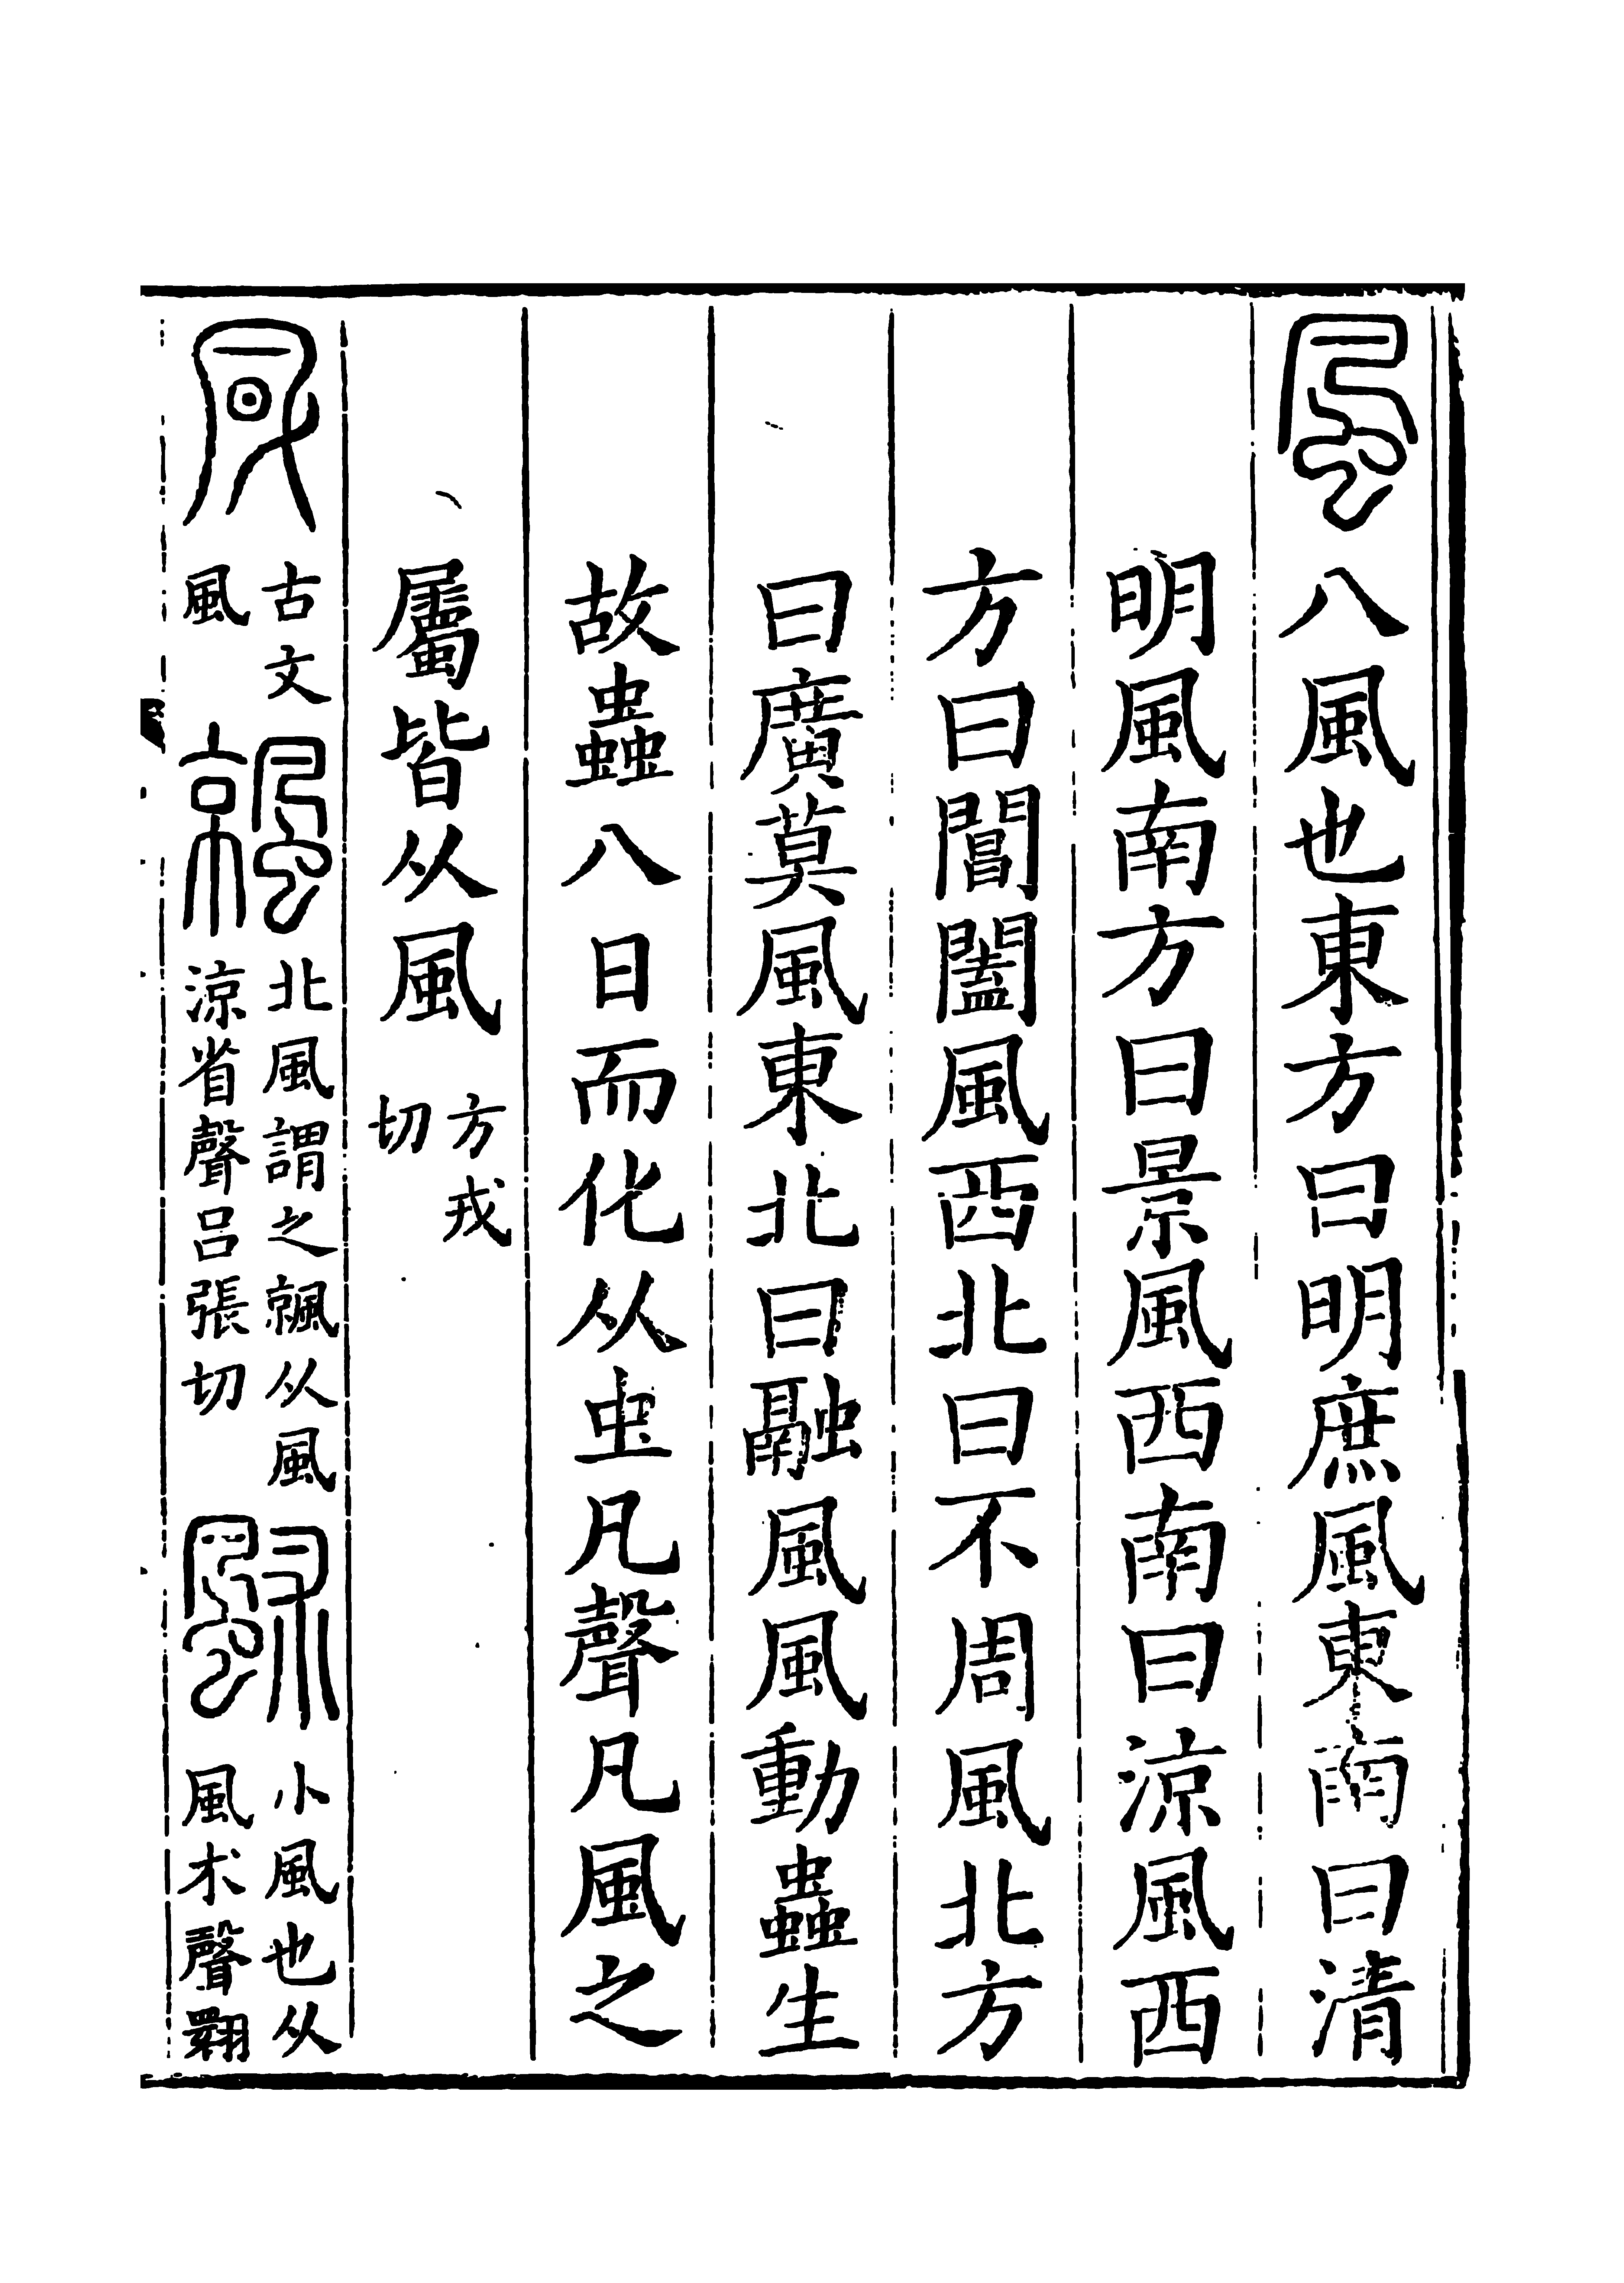 風八風也東方曰明庶風東南曰清
明風南方曰景風西南曰涼風西
方曰閶闔風西北曰不周風北方
曰廣莫風東北曰融風風動蟲生
故蟲八日而化从虫凡聲凡風之
屬皆从風方戎切
𠙈古文風𩗬北風謂之𩗬从風涼省聲呂張切䬂小風也从風术聲翾